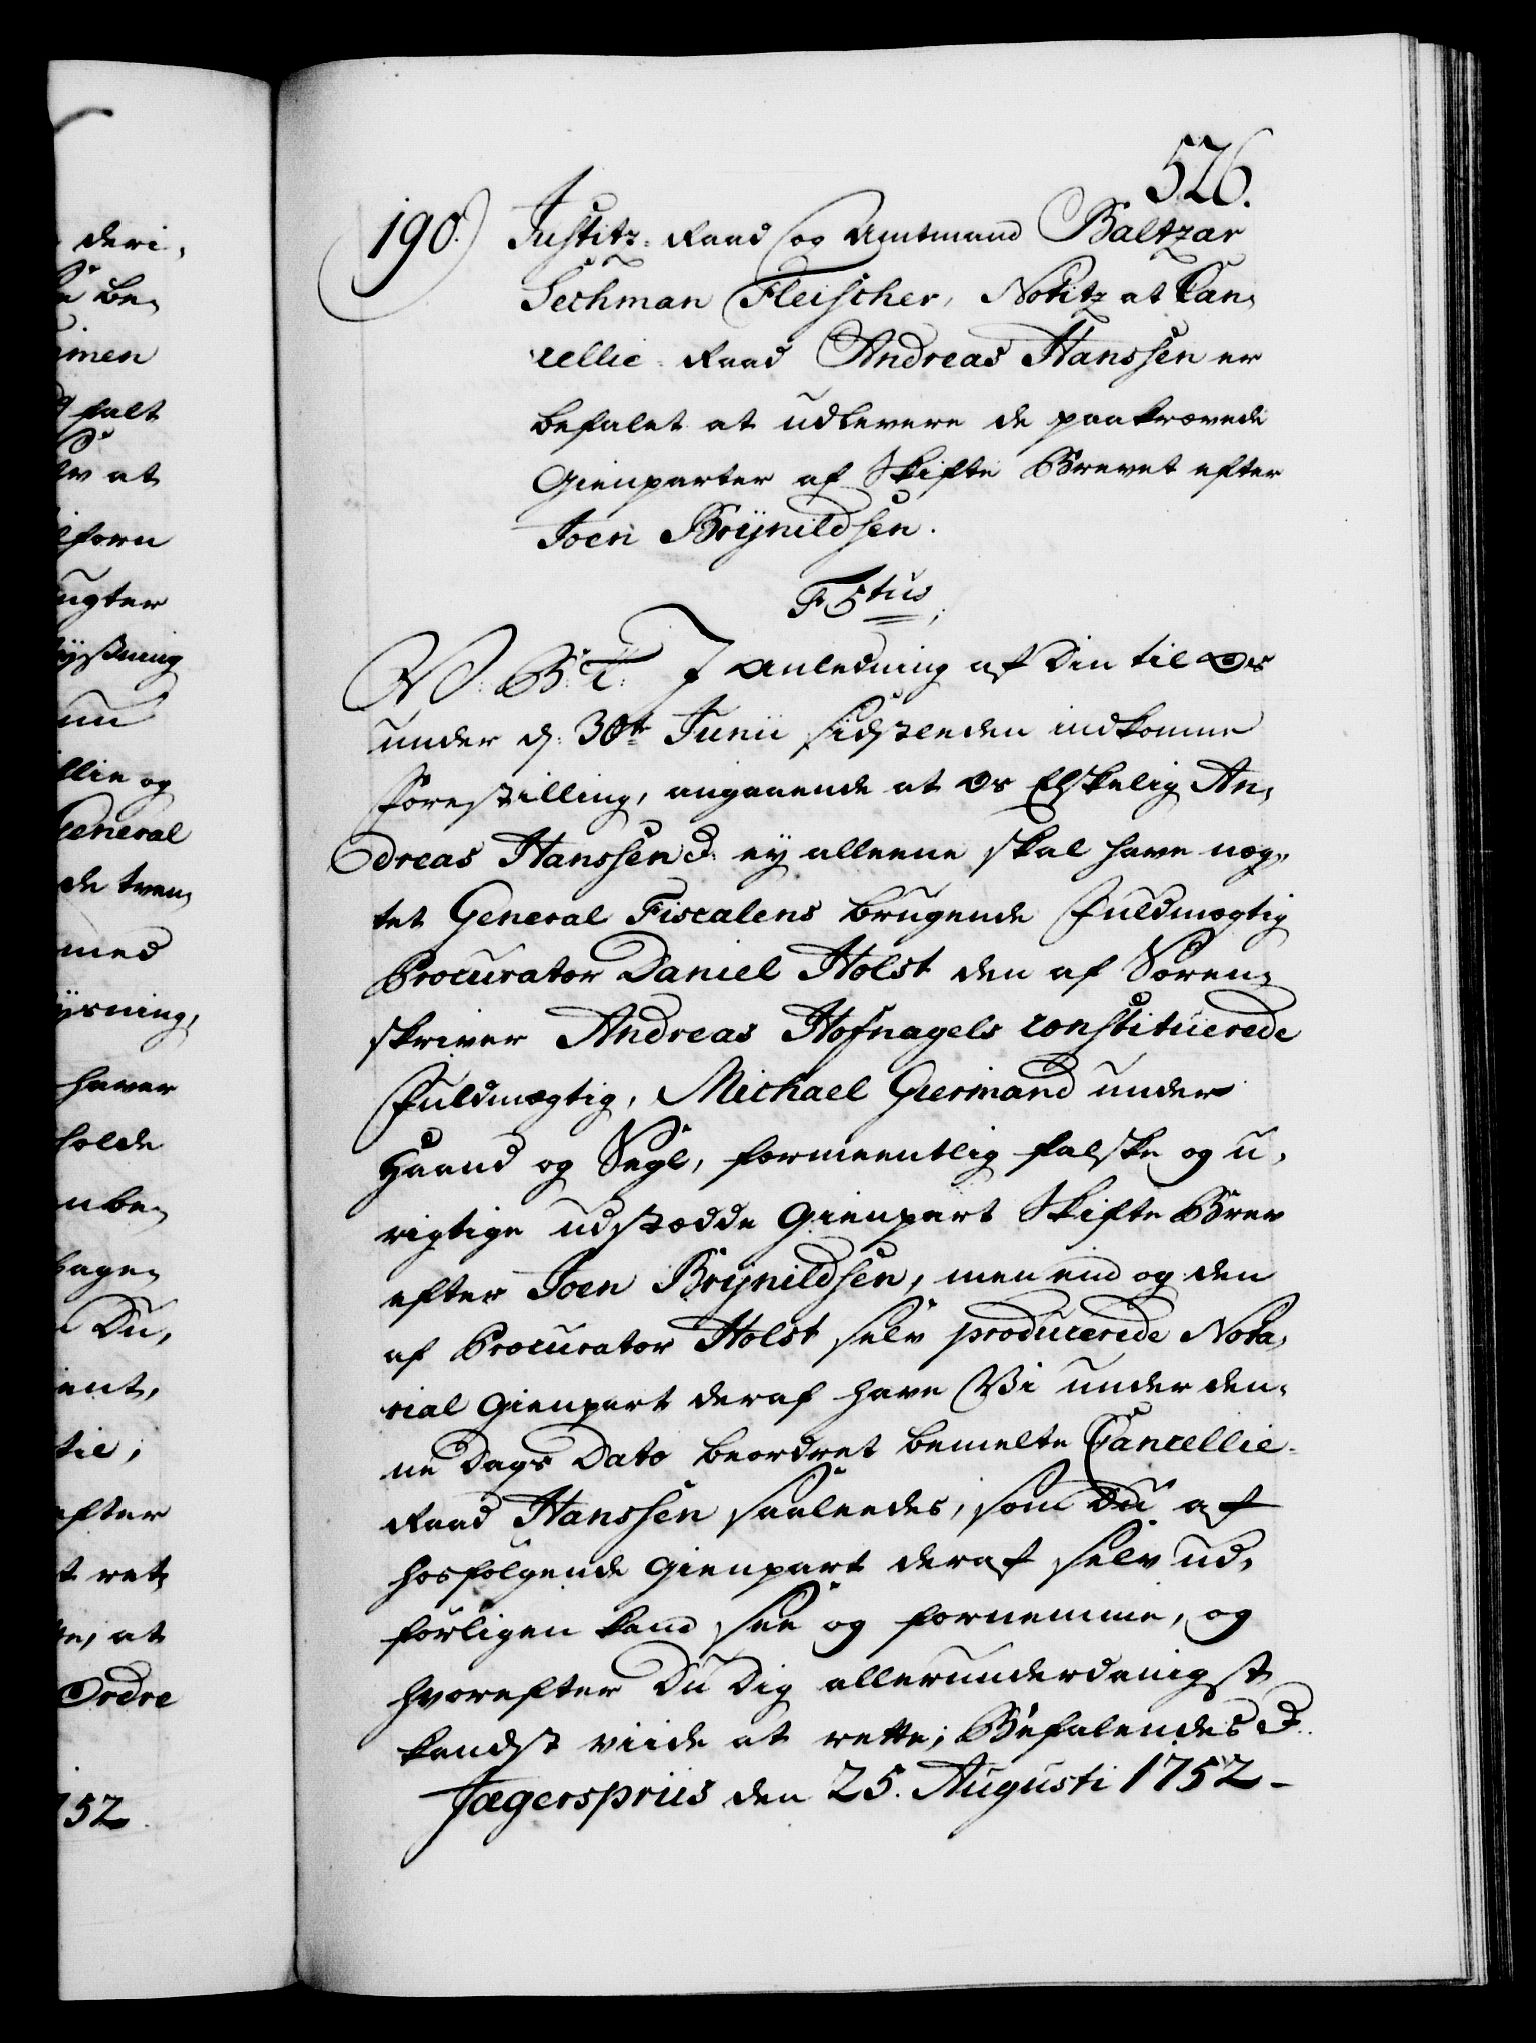 526.
190.) Justitz-Raad og Amtmand Baltzar
Sechman Fleischer, Notitz at Can-
cellie-Raad Andreas Hanssen er
befalet at udlevere de paakrævede
Gienparter af Skifte Brevet efter
Joen Brÿnildsen.
F 5tus
V: G: T: I Anledning af Din til Os
under d: 30te Junii sidstleeden indkomne
Forestilling, angaaende at Os Elskelig An-
dreas Hanssen &: ey alleene skal have næg-
tet General Fiscalens brugende Fuldmægtig
Procurator Daniel Holst den af Soren-
skriver Andreas Hofnagels constituerede
Fuldmægtig, Michael Giermand under
Haand og Segl, formeentlig falske og u-
rigtige udstædde Gienpart Skifte Brev
efter Joen Brÿnildsen, men end og den
af Procurator Holst selv producerede Nota-
rial Gienpart deraf have Vi under den-
ne Dags Dato beordret bemelte Cancellie-
Raad Hanssen saaleedes, som Du af
hosfølgende Gienpart deraf selv ud-
førligen kand see og fornemme, og
hvorefter Du Dig allerunderdanigst
kandst viide at rette; Befalendes &.
Jægerspriis den 25. Augusti 1752-
deri-
be-
falt
at
forn
ugter
ysning
llie og
General
de tven-
med
ysning,
haver
holde
nbe-
Du,
ient,
til,
efter
ret-
at
Ordre
752.